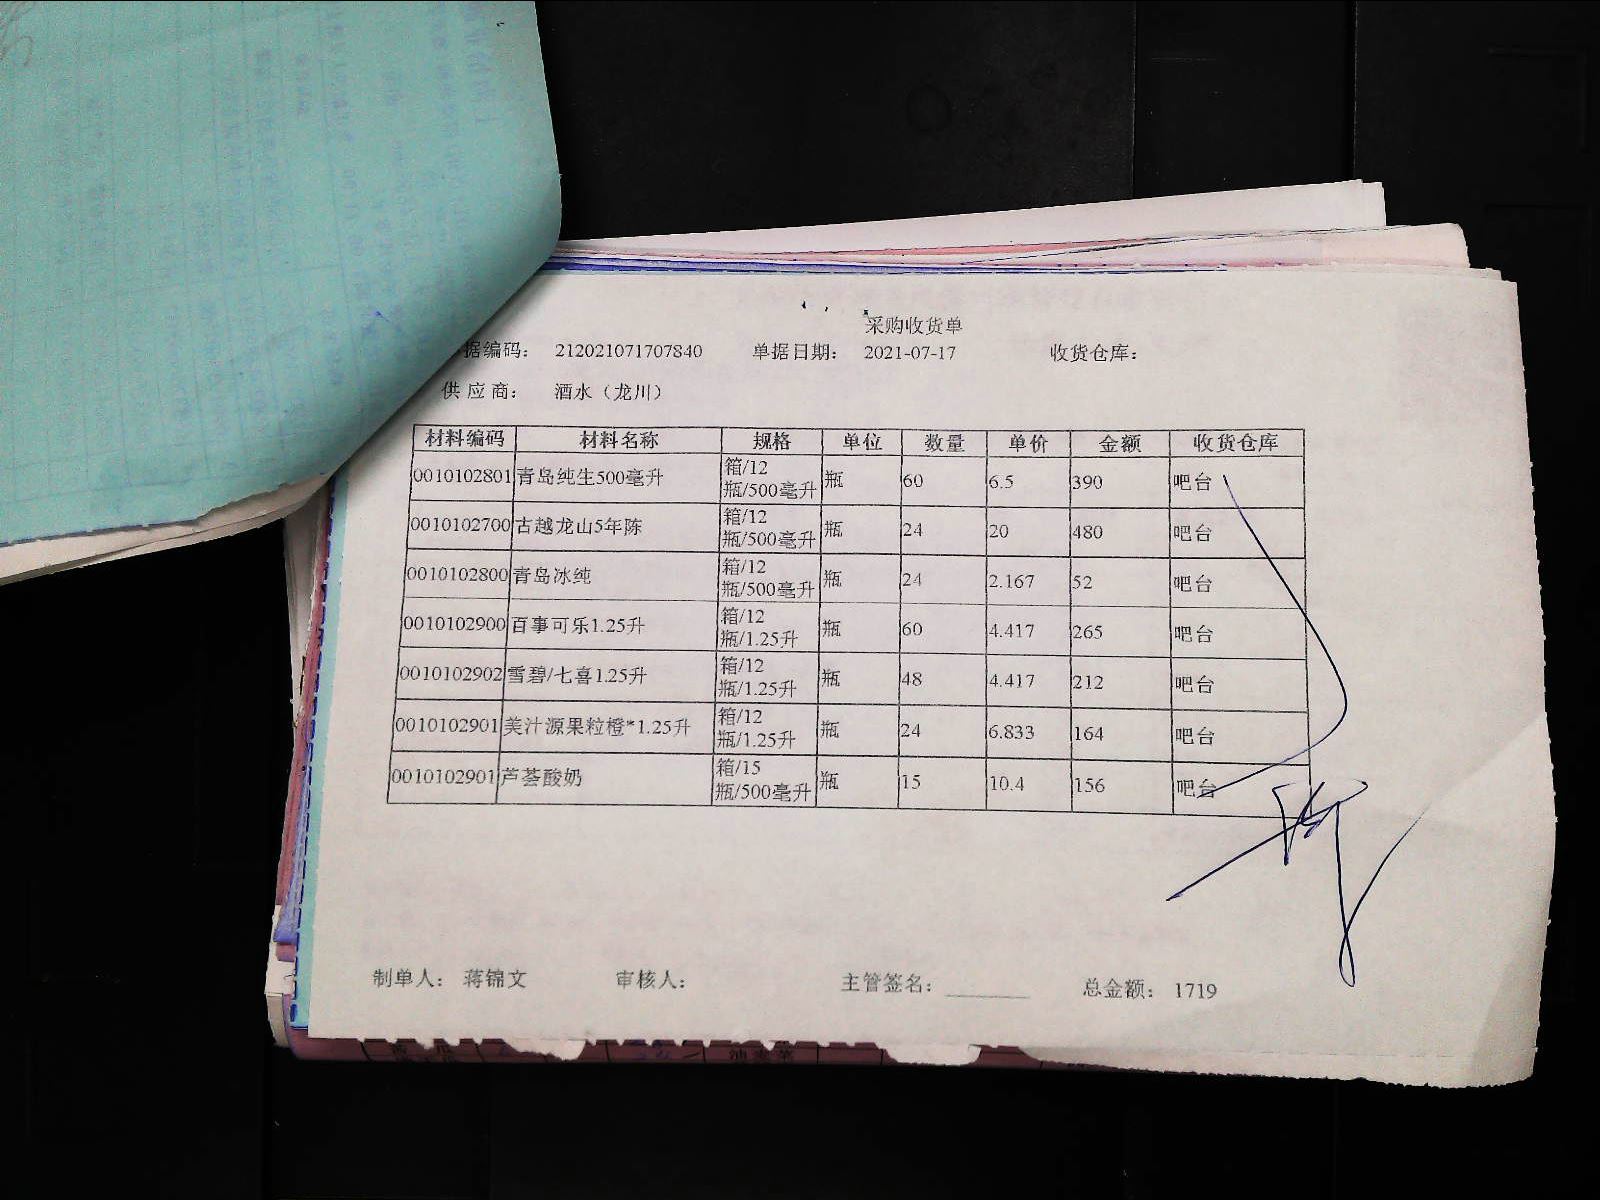 采购收货单
据编码： 212021071707840 单据日期： 2021-07-17 收货仓库：
供应商： 酒水（龙川）
材料编码 材料名称 规格 单位 数量 单价 金额 收货仓库
0010102801 青岛纯生500毫升 箱/12瓶/500毫升 瓶 60 6.5 390 吧台
0010102700 古越龙山5年陈 箱/12瓶/500毫升 瓶 24 20 480 吧台
0010102800 青岛冰纯 箱/12瓶/500毫升 瓶 24 2.167 52 吧台
0010102900 百事可乐1.25升 箱/12瓶/1.25升 瓶 60 4.417 265 吧台
0010102902 雪碧/七喜1.25升 箱/12瓶/1.25升 瓶 48 4.417 212 吧台
0010102901 美汁源果粒橙*1.25升 箱/12瓶/1.25升 瓶 24 6.833 164 吧台
0010102901 芦荟酸奶 箱/15瓶/500毫升 瓶 15 10.4 156 吧台
制单人： 蒋锦文 审核人： 主管签名： 总金额： 1719